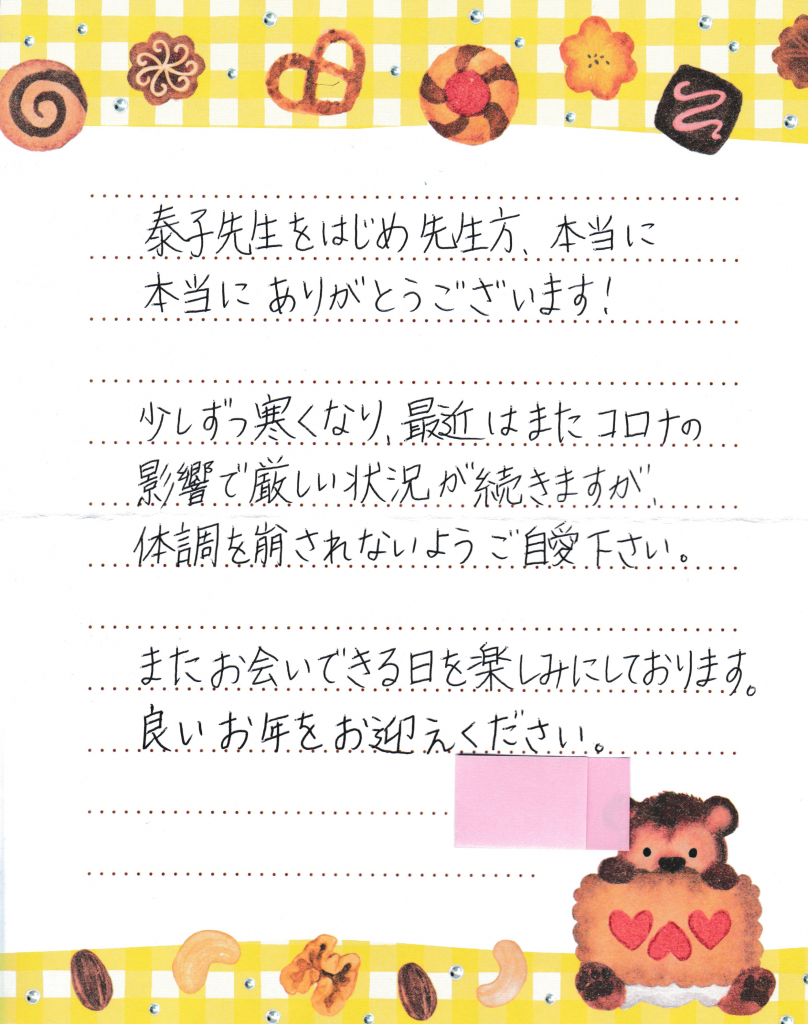 泰子先生をはじめ先生方、本当に
本当にありがとうございます!
少しずつ寒くなり、最近はまたコロナの
影響で厳しい状況が続きますが、
体調を崩されないようご自愛下さい。
またお会いできる日を楽しみにしております。
良いお年をお迎えください。